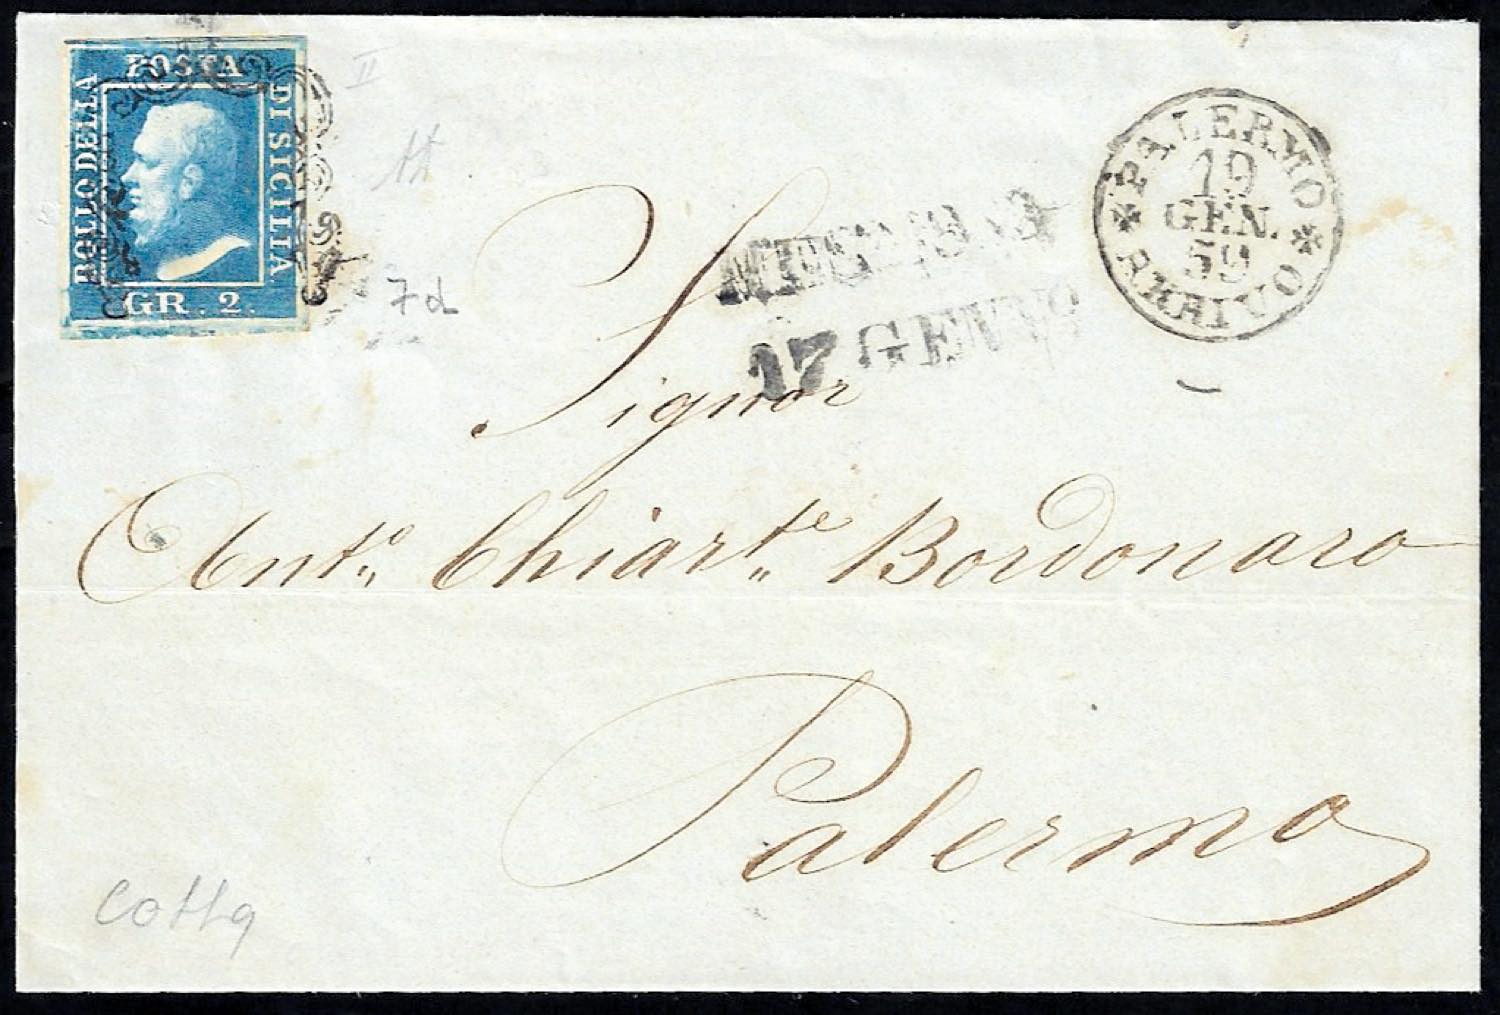 POSTA
BOLLO DELLA
DI SICILIA
GR. 2.
II
7d
PALERMO
19
GEN.
59
ARRIVO
17 GENN
Signor
Ant.º Chiar.te Bordonaro
Palermo